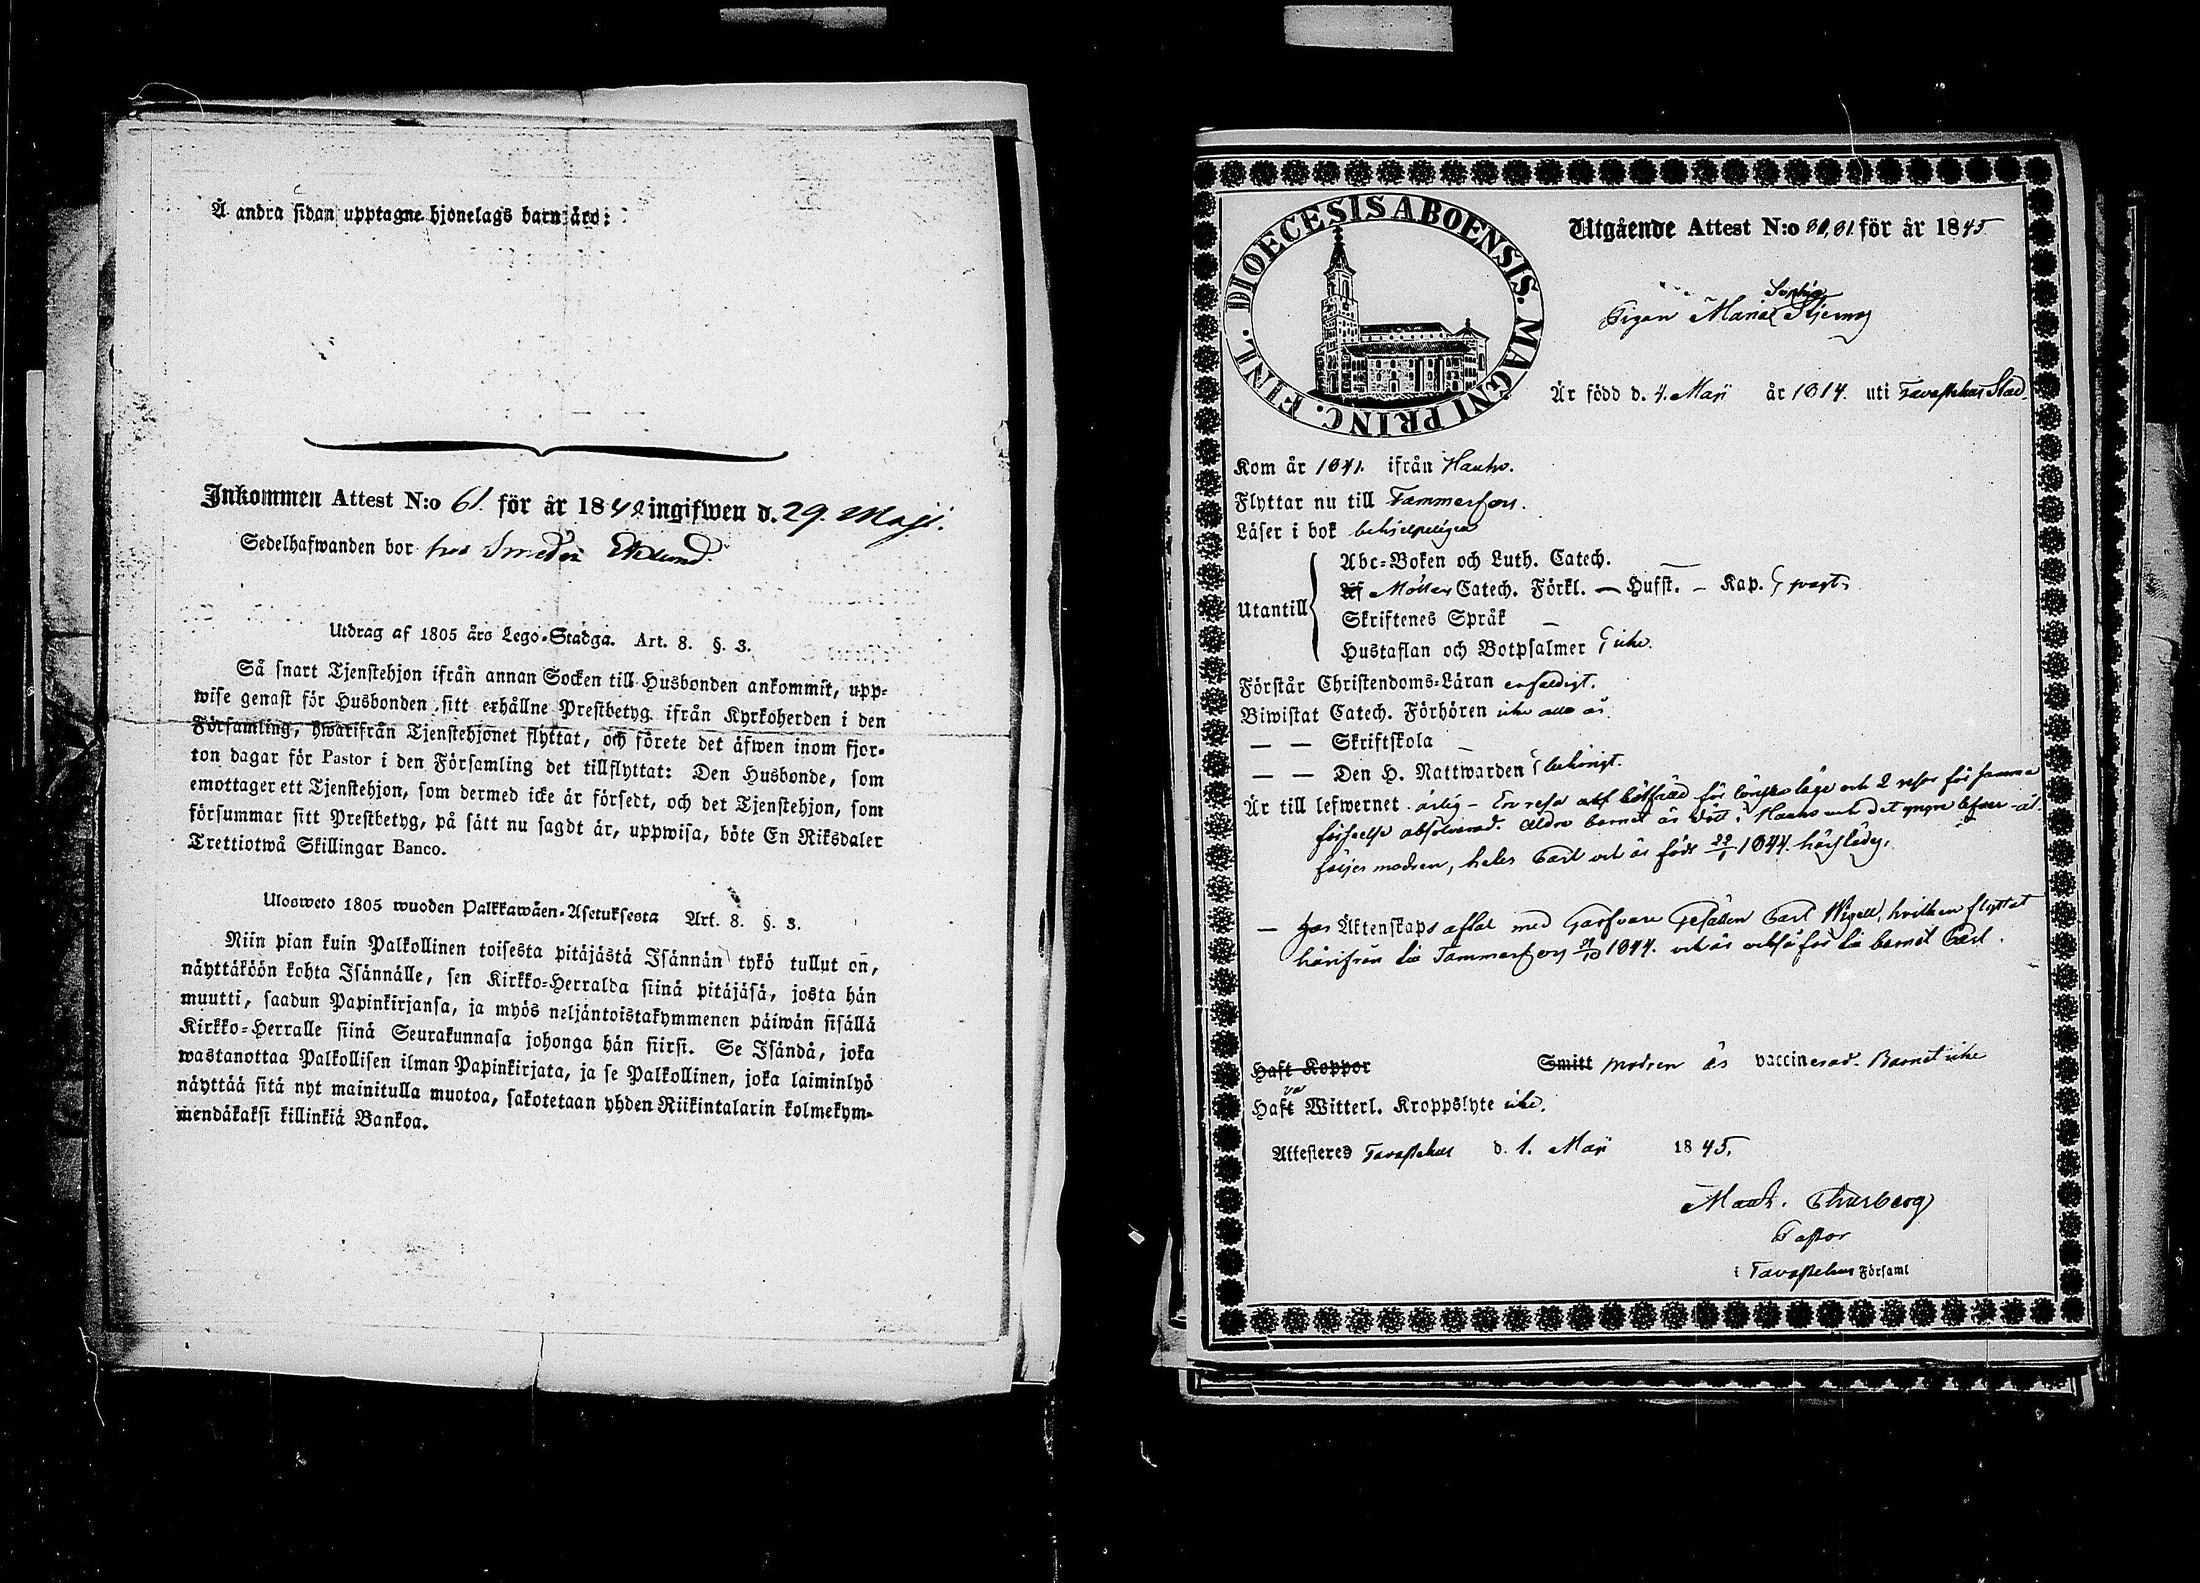 Å andra sidan upptagne hjonelags barn äro:
Inkommen Attest N:o 61. för år 1842 ingifwen d. 29. Maji.
Sedelhafwanden bor hos Smeden Eklund.
Utdrag af 1805 års Lego-Stadga. Art. 8. §. 3.
Så snart Tjenstehjon ifrån annan Socken till Husbonden ankommit, upp-
wise genast för Husbonden sitt erhållne Prestbetyg ifrån Kyrkoherden i den
Församling, hwarifrån Tjenstehjonet flyttat, och förete det äfwen inom fjor-
ton dagar för Pastor i den Församling det tillflyttat: Den Husbonde, som
emottager ett Tjenstehjon, som dermed icke är försedt, och det Tjenstehjon, som
försummar sitt Prestbetyg, på sätt nu sagdt är, uppwisa, böte En Riksdaler
Trettiotwå Skillingar Banco.
Ulosweto 1805 wuoden Palkkawäen-Asetuksesta Art. 8. §. 3.
Niin pian kuin Palkollinen toisesta pitäjästä Isännän tykö tullut on,
näyttäköön kohta Isännälle, sen Kirkko-Herralda siinä pitäjäsä, josta hän
muutti, saadun Papinkirjansa, ja myös neljäntoistakymmenen päiwän sisällä
Kirkko-Herralle siinä Seurakunnasa johonga hän siirsi. Se Isändä, joka
wastanottaa Palkollisen ilman Papinkirjata, ja se Palkollinen, joka laiminlyö
näyttää sitä nyt mainitulla muotoa, sakotetaan yhden Riikintalarin kolmekym-
mendäkaksi killinkiä Bankoa.
DIOECESIS ABOENSIS. MAGNI PRINC. FINL.
Utgående Attest N:o för år 1845
Sophia
Pigan Maria Stjerna
Är född d. 4. Maji år 1814. uti Tavastehus Stad.
Kom år 1841. ifrån Hauho.
Flyttar nu till Tammerfors.
Läser i bok behjelpeligen
Utantill
Abc-Boken och Luth. Catech.
Af Möllers Catech. Förkl. — Hufst. — Kap. svagt
Skriftenes Språk —
Hustaflan och Botpsalmer icke.
Förstår Christendoms-Läran enfaldigt.
Biwistat Catech. Förhören icke alla år.
— — Skriftskola —
— — Den H. Nattwarden behörigt.
Är till lefwernet ärlig — En resa bötfälld för lönskaläge och 2 resor för samma
förseelse absolverad. Äldre barnet är dött i Hauho och det yngre lefver
följer modren, heter Carl och är född 22/1 1844. härstädes.
— Har Äktenskaps aftal med Garfvare Gesällen Carl Wigell, hvilken flyttat
härifrån till Tammerfors 21/10 1844. och är också far till barnet Carl.
Haft Koppor Smitt modren är vaccinerad. Barnet icke
Haft Witterl. Kroppslyte icke.
Attesteres Tavastehus d. 1. Maji 1845.
Math. Thurberg
Pastor
i Tavastehus Församl